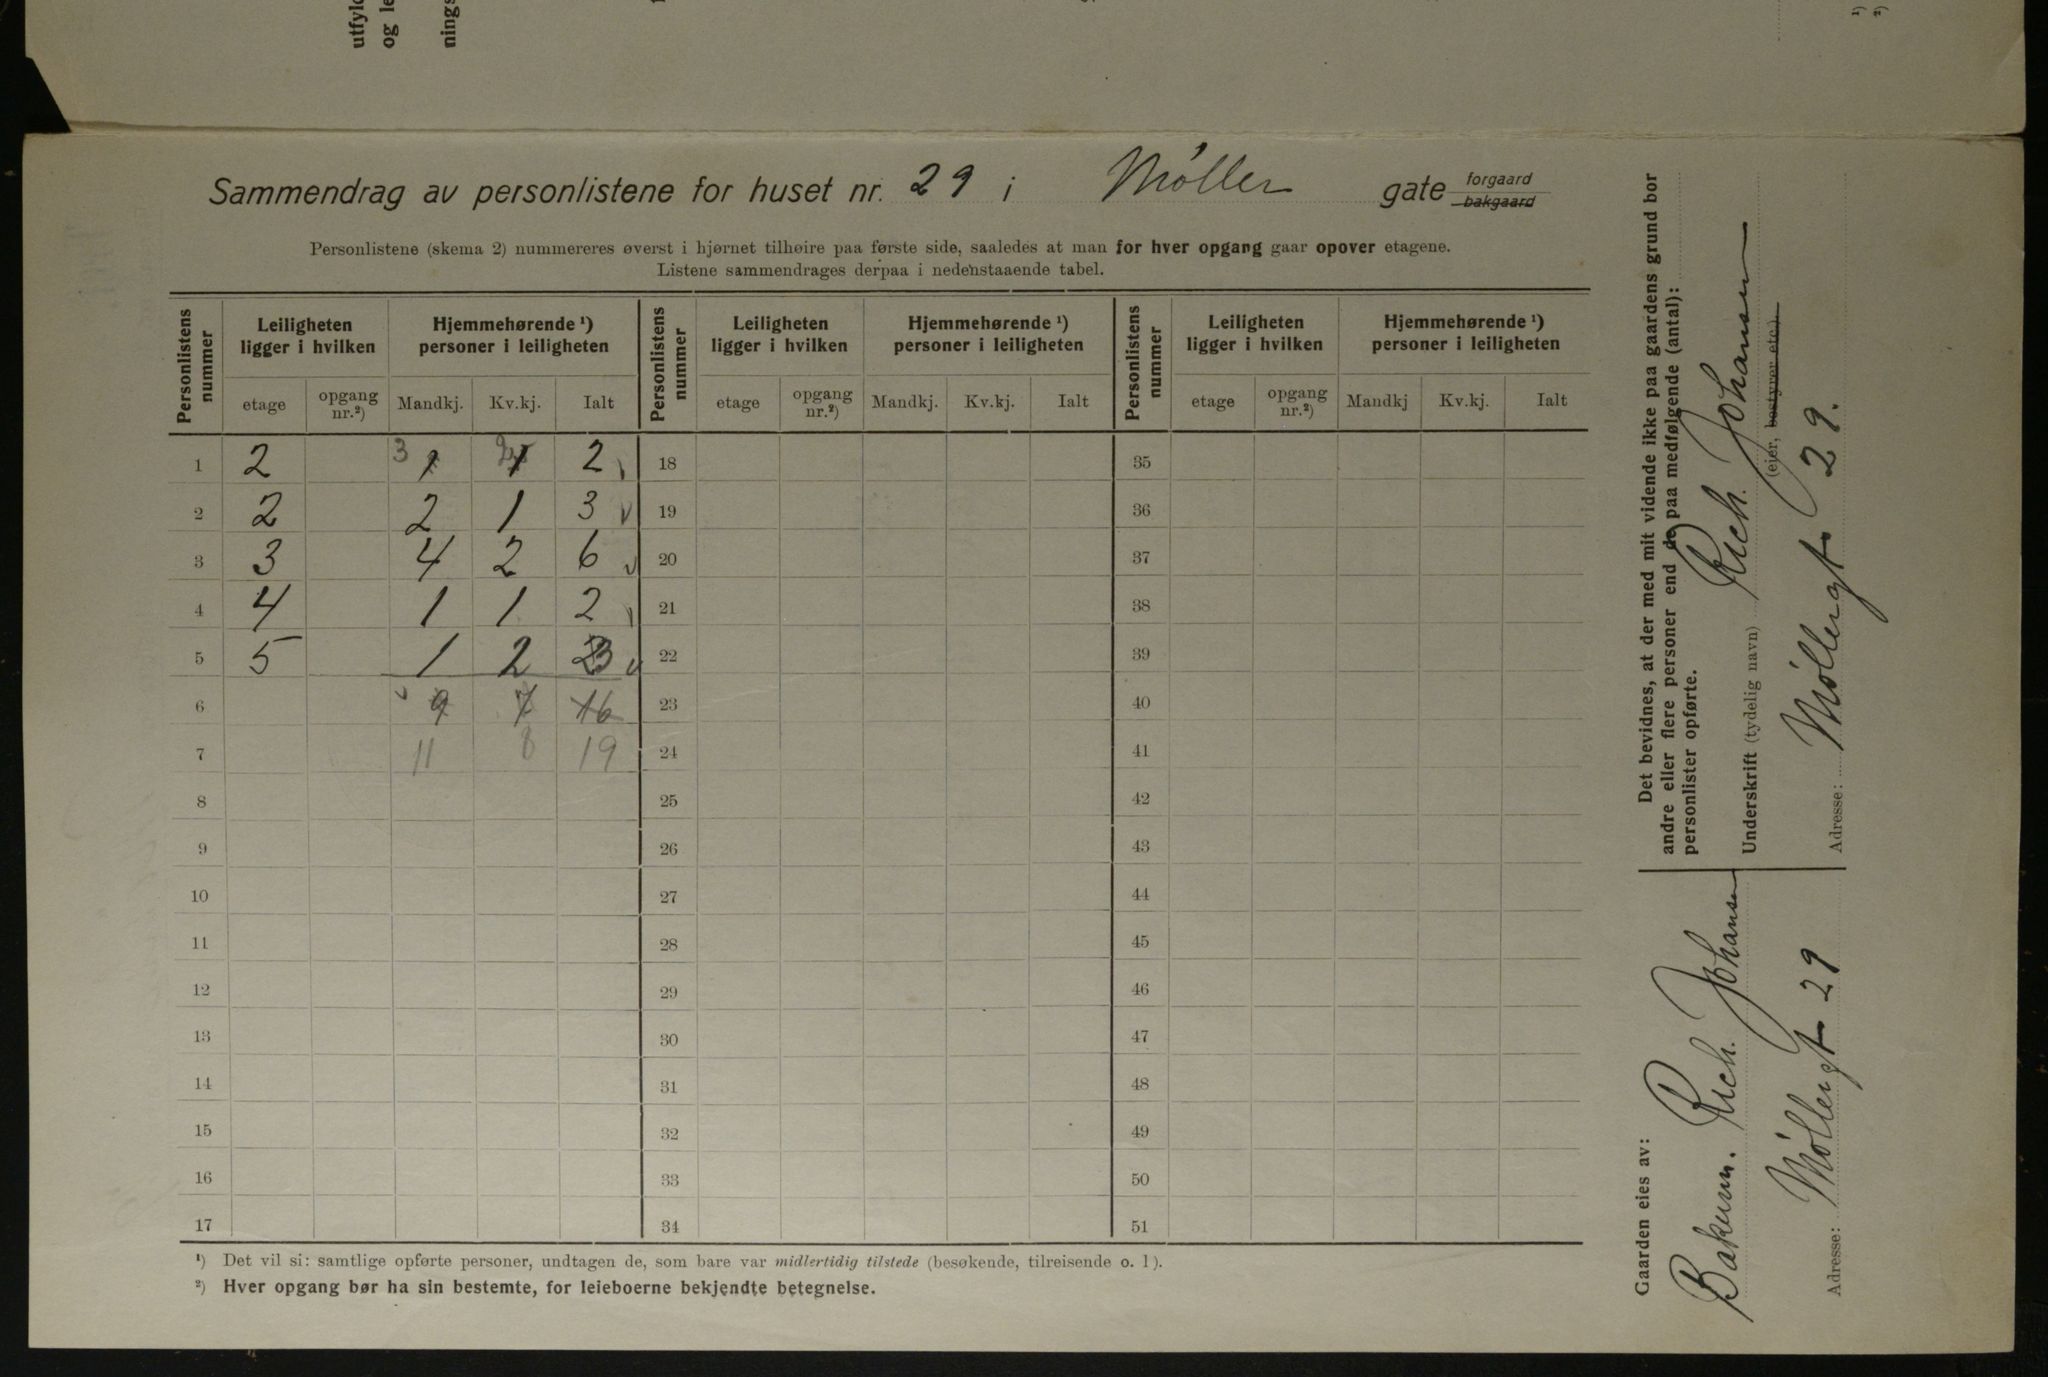 utfyld
og le
nings
¹)
²)
Sammendrag av personlistene for huset nr. 29 i Møller gate forgaard
bakgaard
Personlistene (skema 2) nummereres øverst i hjørnet tilhøire paa første side, saaledes at man for hver opgang gaar opover etagene.
Listene sammendrages derpaa i nedenstaaende tabel.
Personlistens nummer | Leiligheten ligger i hvilken | Hjemmehørende ¹) personer i leiligheten | Personlistens nummer | Leiligheten ligger i hvilken | Hjemmehørende ¹) personer i leiligheten | Personlistens nummer | Leiligheten ligger i hvilken | Hjemmehørende ¹) personer i leiligheten
etage | opgang nr.²) | Mandkj. | Kv.kj. | Ialt | etage | opgang nr.²) | Mandkj. | Kv.kj. | Ialt | etage | opgang nr.²) | Mandkj | Kv.kj. | Ialt
1 2 3 1 2 1 2 18 35
2 2 2 1 3 19 36
3 3 4 2 6 20 37
4 4 1 1 2 21 38
5 5 1 2 3 22 39
6 9 7 16 23 40
7 11 8 19 24 41
8 25 42
9 26 43
10 27 44
11 28 45
12 29 46
13 30 47
14 31 48
15 32 49
16 33 50
17 34 51
¹) Det vil si: samtlige opførte personer, undtagen de, som bare var midlertidig tilstede (besøkende, tilreisende o. l).
²) Hver opgang bør ha sin bestemte, for leieboerne bekjendte betegnelse.
Det bevidnes, at der med mit vidende ikke paa gaardens grund bor
andre eller flere personer end de paa medfølgende (antal):
personlister opførte.
Underskrift (tydelig navn) Rich. Johansen
(eier, bestyrer etc.).
Adresse: Møllergt 29.
Gaarden eies av:
Bakerm. Rich. Johansen
Adresse: Møllergt 29